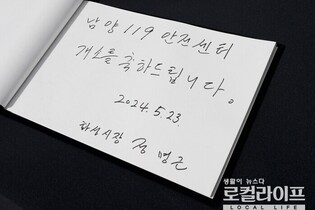 남양 119 안전센터
개소를 축하드립니다.
2024.5.23.
화성시장 정명근
생활이 뉴스다
로컬라이프
LOCAL LIFE